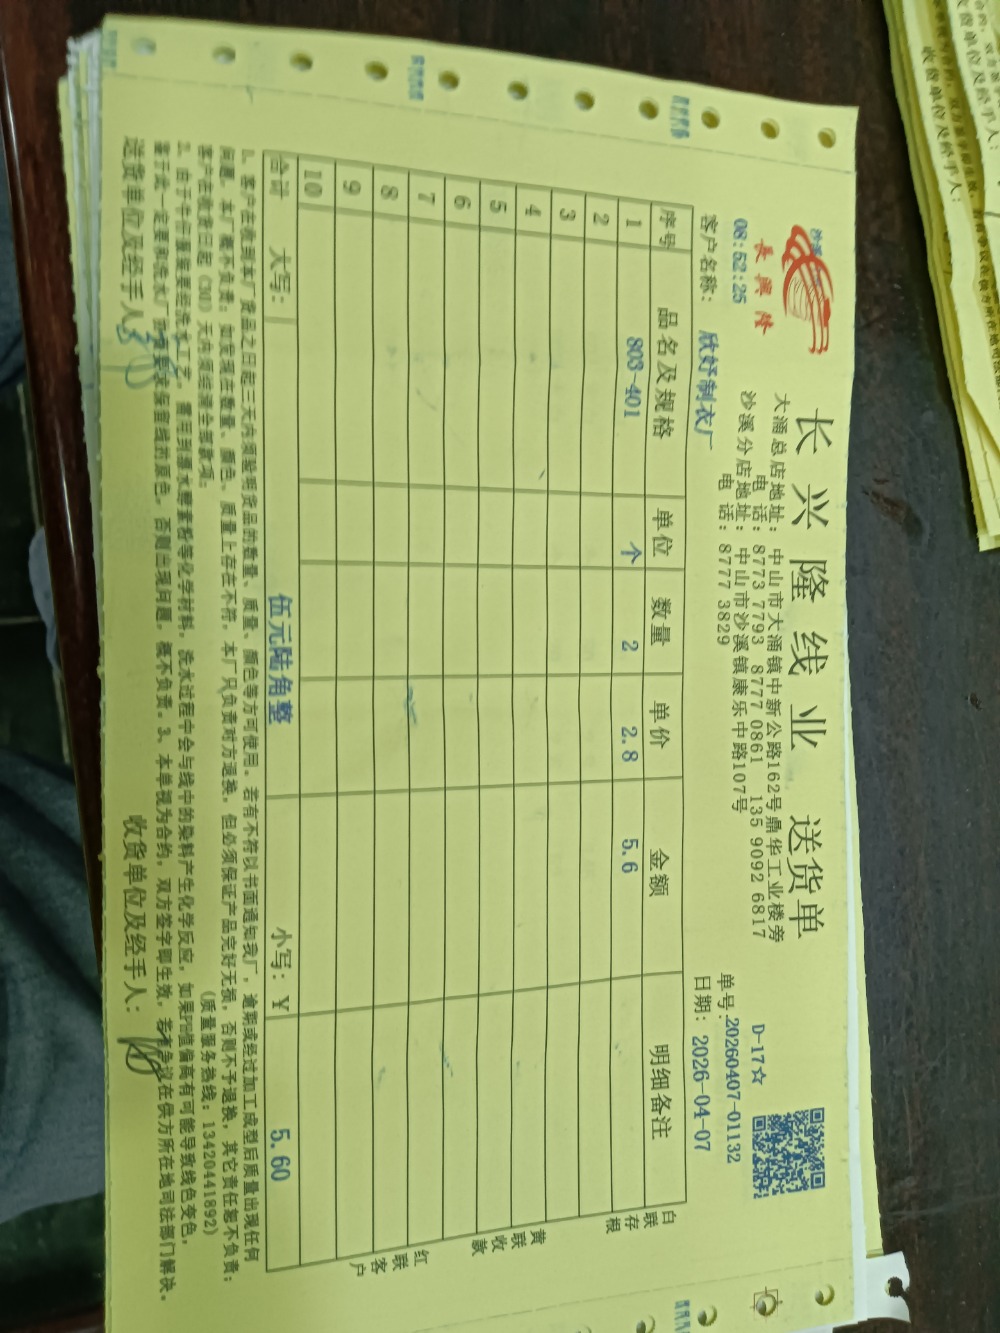 长兴隆线业 送货单
沙溪
長興隆
大涌总店地址: 中山市大涌镇中新公路162号鼎华工业楼旁
电话: 8773 7793 8777 0861 135 9092 6817
沙溪分店地址: 中山市沙溪镇康乐中路107号
电话: 8777 3829
08:52:25
D-17☆
单号:20260407-01132
客户名称: 欣好制衣厂
日期: 2026-04-07
序号 品名及规格 单位 数量 单价 金额 明细备注
1 803-401 个 2 2.8 5.6
2
3
4
5
6
7
8
9
10
合计 大写: 伍元陆角整 小写: ¥ 5.60
白联存根
黄联收款
红联客户
1、客户在收到本厂货品之日起三天内须验明货品的数量、质量、颜色等方可使用。若有不符以书面通知我厂，逾期或经过加工成型后质量出现任何
问题，本厂概不负责；如发现在数量、颜色、质量上存在不符，本厂只负责对方退换，但必须保证产品完好无损，否则不予退换，其它责任概不负责；
客户在收货日起（30）天内须结清全部款项；
(质量服务热线: 13420441892)
2、由于牛仔服装要经洗水工艺，需用到漂水酵素粉等化学材料，洗水过程中会与线中的染料产生化学反应，如果PH值偏高有可能导致线色变色，
鉴于此一定要和洗水厂 保留线的原色，否则出现问题，概不负责。3、本单视为合约，双方签字即生效，若有争议在供方所在地司法部门解决。
送货单位及经手人
收货单位及经手人:
收货单位及经手人: